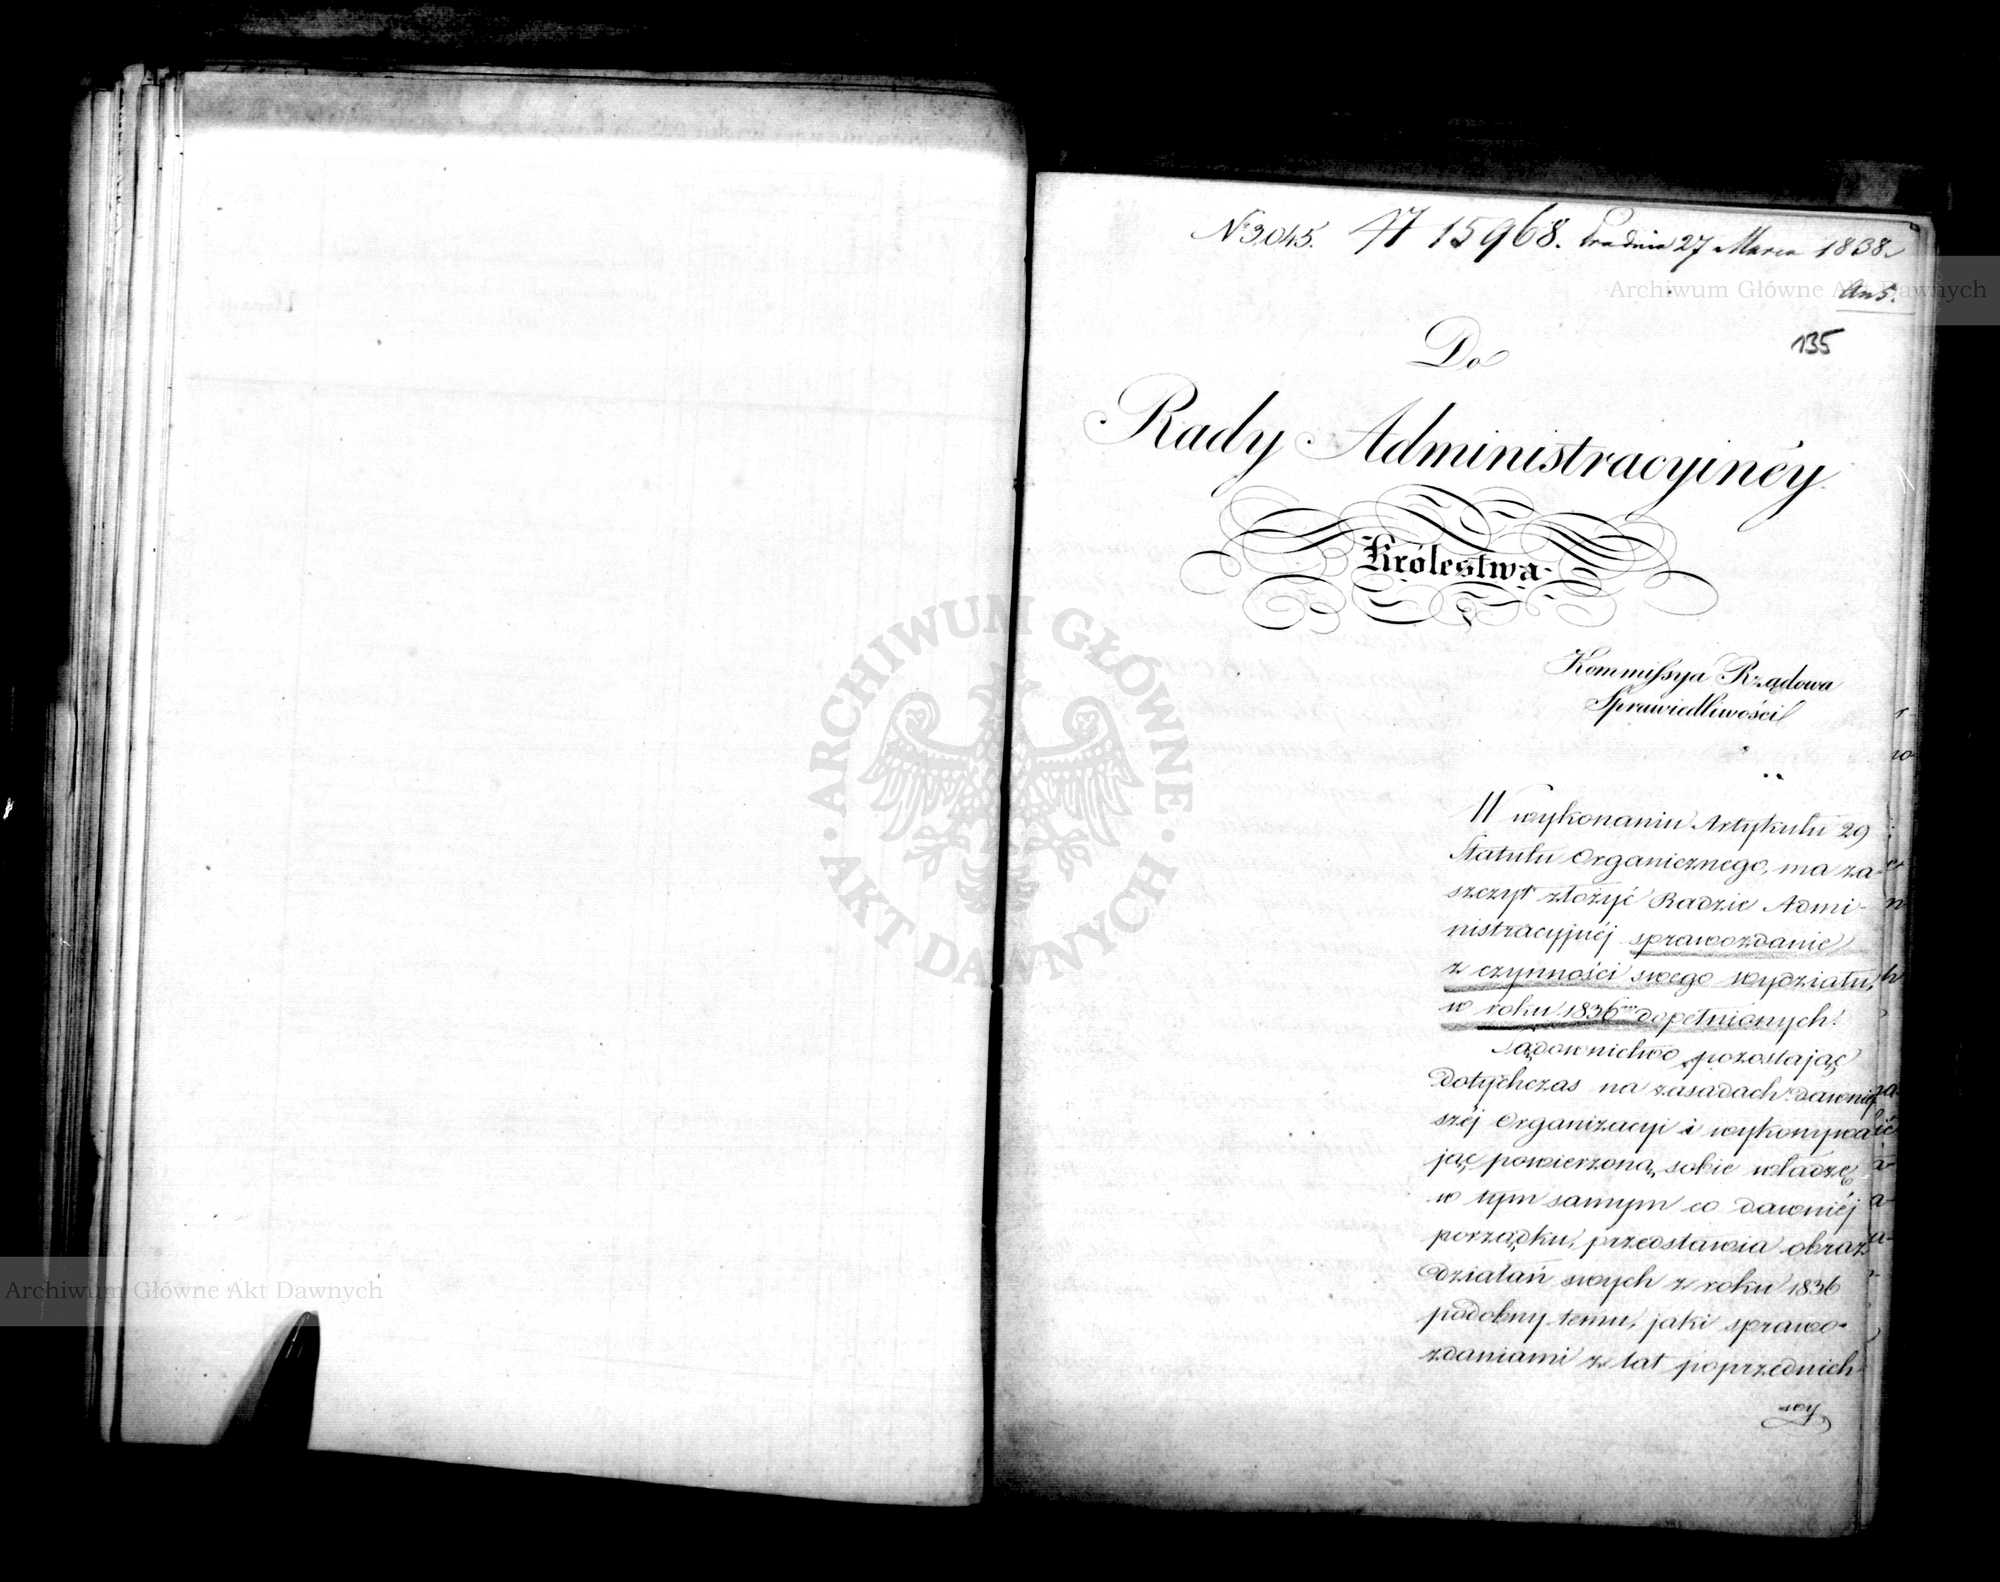 No 3045. 15968. 27 Marca 1838.
135
Do
Rady Administracyinéy
Królestwa
Kommissya Rządowa
Sprawiedliwości
W wykonaniu Artykułu 29
Statutu Organicznego, ma za-
szczyt złożyć Radzie Admi-
nistracyjnéj sprawozdanie
z czynności swego wydziału,
w roku 1836m dopełnionych.
Sądownictwo pozostając
dotychczas na zasadach dawniej-
széj Organizacyi i wykonywa-
jąc powierzoną sobie władzę
w tym samym co dawniéj
porządku, przedstawia obraz
działań swych z roku 1836
podobny temu, jaki sprawo-
zdaniami z lat poprzednich
Archiwum Główne Akt Dawnych
Archiwum Główne Akt Dawnych
ARCHIWUM GŁÓWNE
AKT DAWNYCH